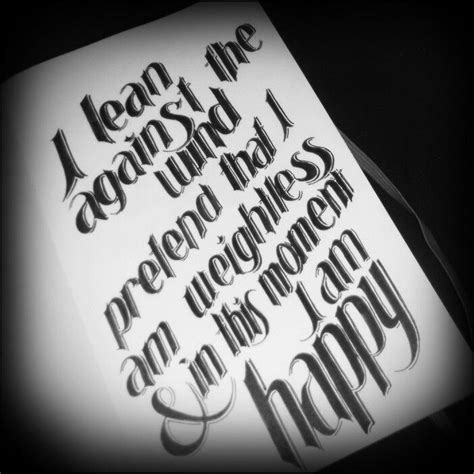 I lean
against the
wind
pretend that I
am weightless
& in this moment
I am
happy